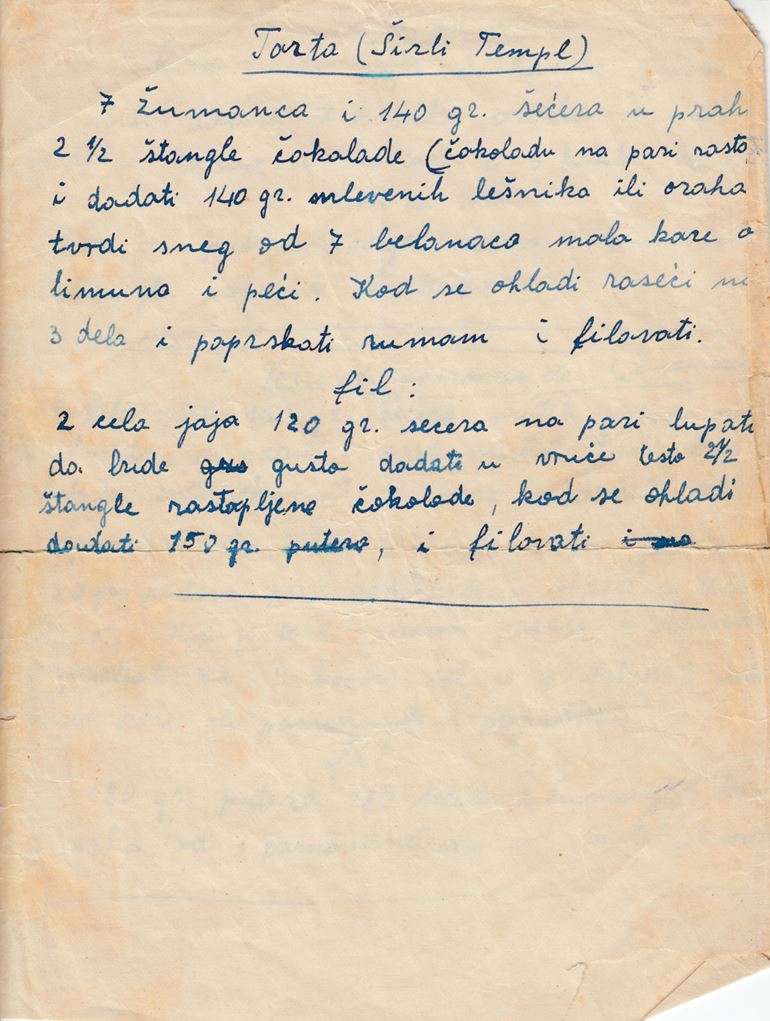 Torta (Širli Templ)
7 žumanca i 140 gr. šećera u prah
2 1/2 štangle čokolade (čokoladu na pari rasto
i dodati 140 gr. mlevenih lešnika ili oraha
tvrdi sneg od 7 belanaca mala kore o
limuna i peći. Kod se ohladi raseći na
3 dela i poprskati rumom i filovati.
fil:
2 cela jaja 120 gr. secera na pari lupati
da bude gusto dodati u vruće testo 2 1/2
štangle rastopljene čokolade, kod se ohladi
dodati 150 gr. putera, i filovati